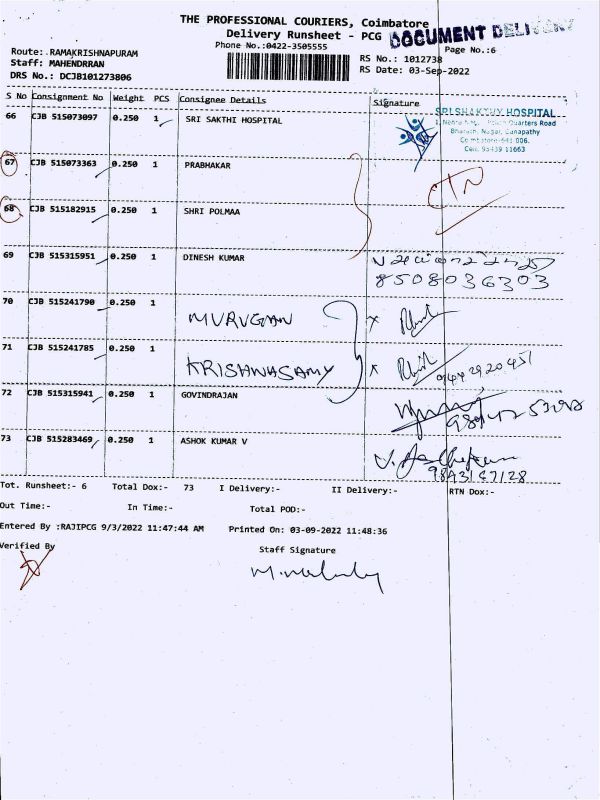 THE PROFESSIONAL COURIERS, Coimbatore
Delivery Runsheet - PCG
DOCUMENT DELIVERY
Phone No.:0422-3505555
Page No.:6
Route:.RAMAKRISHNAPURAM
RS No.: 1012738
Staff: MAHENDRRAN
RS Date: 03-Sep-2022
DRS No.: DCJB101273806
S No Consignment No Weight PCS Consignee Details Signature
66 CJB 515073097 0.250 1 SRI SAKTHI HOSPITAL
SRI SHAKTHY HOSPITAL
Quarters Road
Bharathi Nagar, Ganapathy
Coimbatore-641 006.
Cell: 95439 11663
67 CJB 515073363 0.250 1 PRABHAKAR
CTN
68 CJB 515182915 0.250 1 SHRI POLMAA
69 CJB 515315951 0.250 1 DINESH KUMAR
8508036303
70 CJB 515241790 0.250 1 MURUGAN
71 CJB 515241785 0.250 1 KRISHNASAMY
72 CJB 515315941 0.250 1 GOVINDRAJAN
73 CJB 515283469 0.250 1 ASHOK KUMAR V
Tot. Runsheet:- 6 Total Dox:- 73 I Delivery:- II Delivery:- RTN Dox:-
Out Time:- In Time:- Total POD:-
Entered By :RAJIPCG 9/3/2022 11:47:44 AM Printed On: 03-09-2022 11:48:36
Verified By Staff Signature